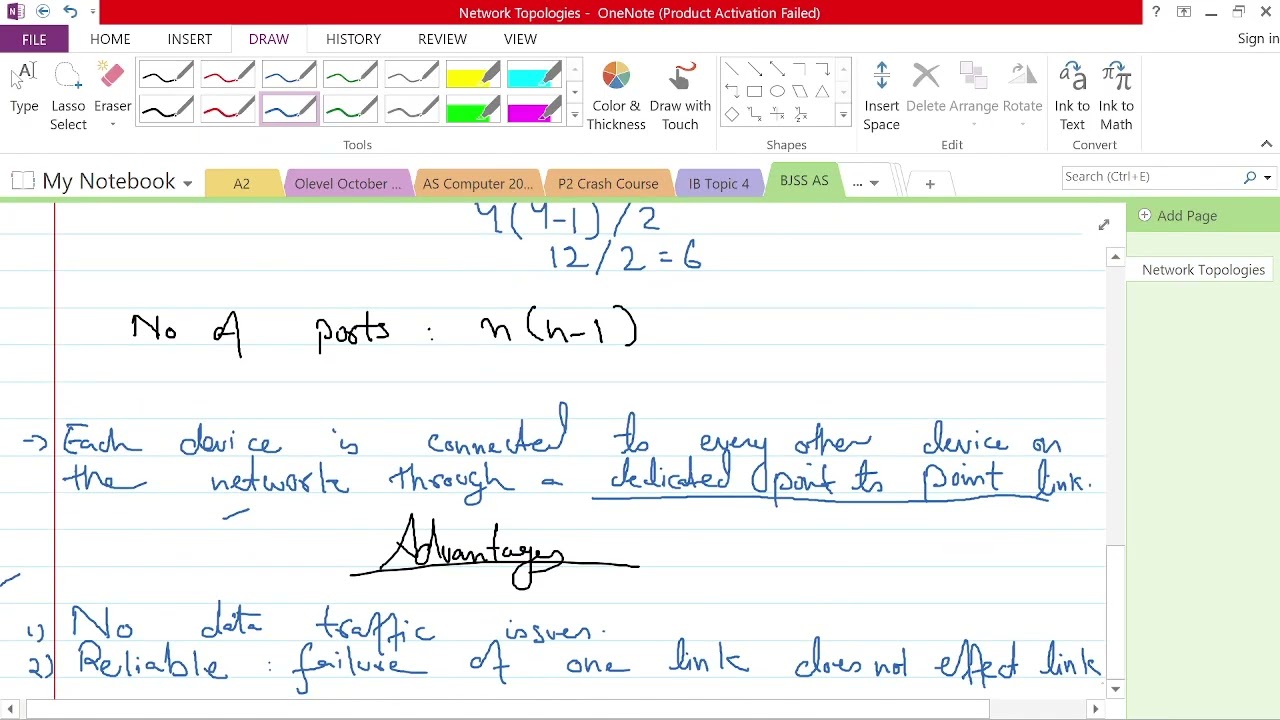 Network Topologies - OneNote (Product Activation Failed)
FILE HOME INSERT DRAW HISTORY REVIEW VIEW
Sign in
Type Lasso Select Eraser
Color & Thickness Draw with Touch
Insert Space Delete Arrange Rotate
Ink to Text Ink to Math
Tools Shapes Edit Convert
My Notebook A2 Olevel October ... AS Computer 20... P2 Crash Course IB Topic 4 BJSS AS ... +
Search (Ctrl+E)
Add Page
Network Topologies
4(4-1)/2
12/2 = 6
No of ports : n(n-1)
→ Each device is connected to every other device on
the network through a dedicated point to point link.
Advantages
1) No data traffic issues.
2) Reliable : failure of one link does not effect link